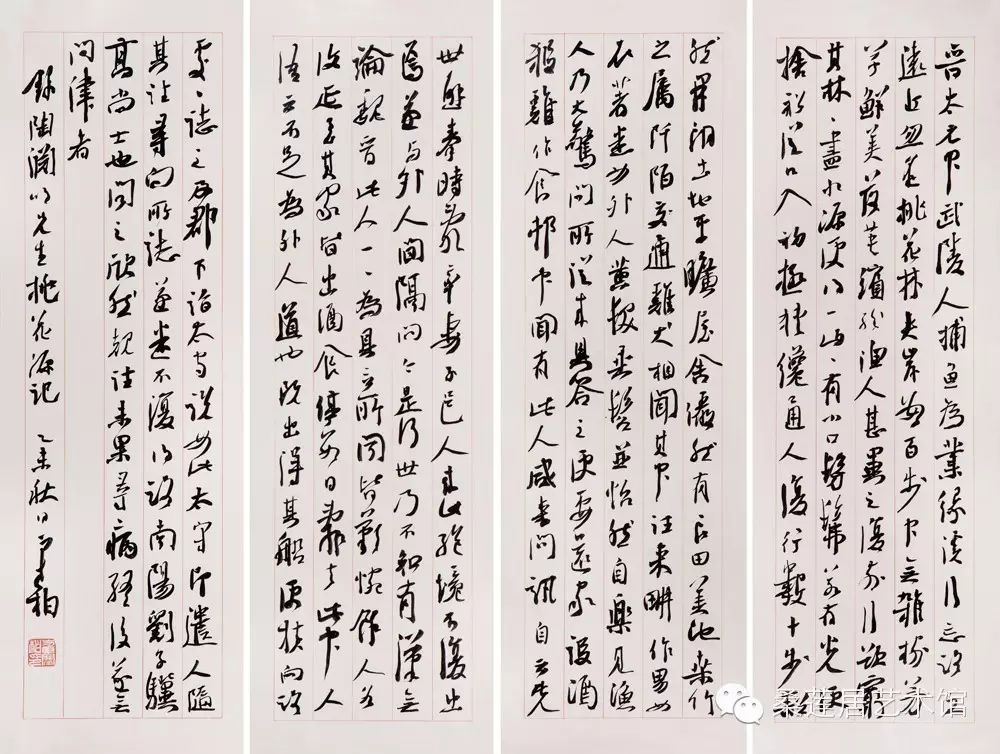 晉太元中武陵人捕魚為業緣溪行忘路之
遠近忽逢桃花林夹岸數百步中無雜樹芳
草鮮美落英繽紛漁人甚異之復前行欲窮
其林、盡水源便得一山、有小口髣髴若有光便
捨船從口入初極狹纔通人復行數十步豁
然開朗土地平曠屋舍儼然有良田美池桑竹
之屬阡陌交通雞犬相聞其中往来畊作男女
衣著悉如外人黄髮垂髫並怡然自樂見漁
人乃大驚問所從来具答之便要還家設酒
殺雞作食邨中聞有此人咸来問訊自云先
世避秦時亂率妻子邑人来此絕境不復出
焉遂與外人間隔問今是何世乃不知有漢無
論魏晉此人一、為具言所聞皆歎惋餘人各
復延至其家皆出酒食停數日辭去此中人
語云不足為外人道也既出得其船便扶向路
處、誌之及郡下詣太守說如此太守即遣人隨
其往尋向所誌遂迷不復得路南陽劉子驥
高尚士也聞之欣然規往未果尋病終後遂無
問津者
錄陶淵明先生桃花源記 乙未秋日
桑莲居艺术馆